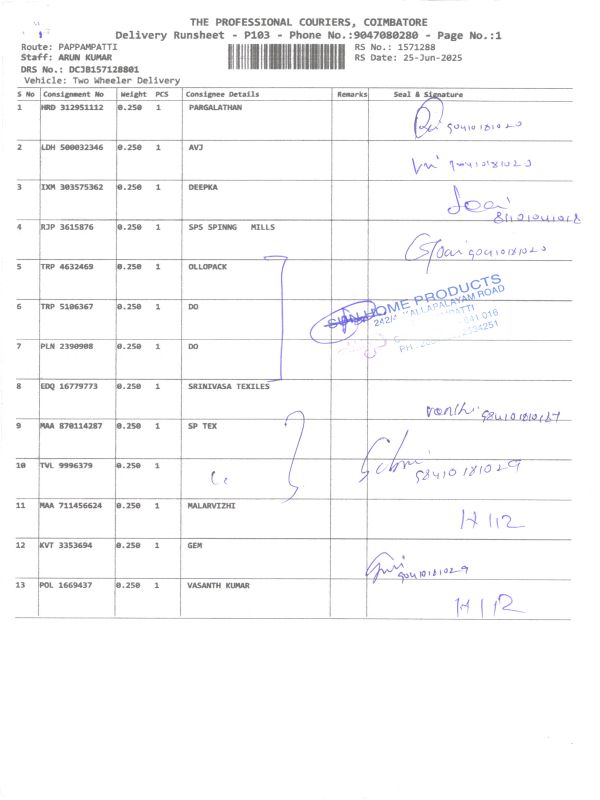 THE PROFESSIONAL COURIERS, COIMBATORE
Delivery Runsheet - P103 - Phone No.:9047080280 - Page No.:1
Route: PAPPAMPATTI RS No.: 1571288
Staff: ARUN KUMAR RS Date: 25-Jun-2025
DRS No.: DCJB157128801
Vehicle: Two Wheeler Delivery
S No Consignment No Weight PCS Consignee Details Remarks Seal & Signature
1 HRD 312951112 0.250 1 PARGALATHAN
2 LDH 500032346 0.250 1 AVJ
3 IXM 303575362 0.250 1 DEEPKA
4 RJP 3615876 0.250 1 SPS SPINNG MILLS
5 TRP 4632469 0.250 1 OLLOPACK
HOME PRODUCTS
6 TRP 5106367 0.250 1 DO
7 PLN 2390908 0.250 1 DO
8 EDQ 16779773 0.250 1 SRINIVASA TEXILES
9 MAA 870114287 0.250 1 SP TEX
10 TVL 9996379 0.250 1
11 MAA 711456624 0.250 1 MALARVIZHI
H 112
12 KVT 3353694 0.250 1 GEM
13 POL 1669437 0.250 1 VASANTH KUMAR
H 112